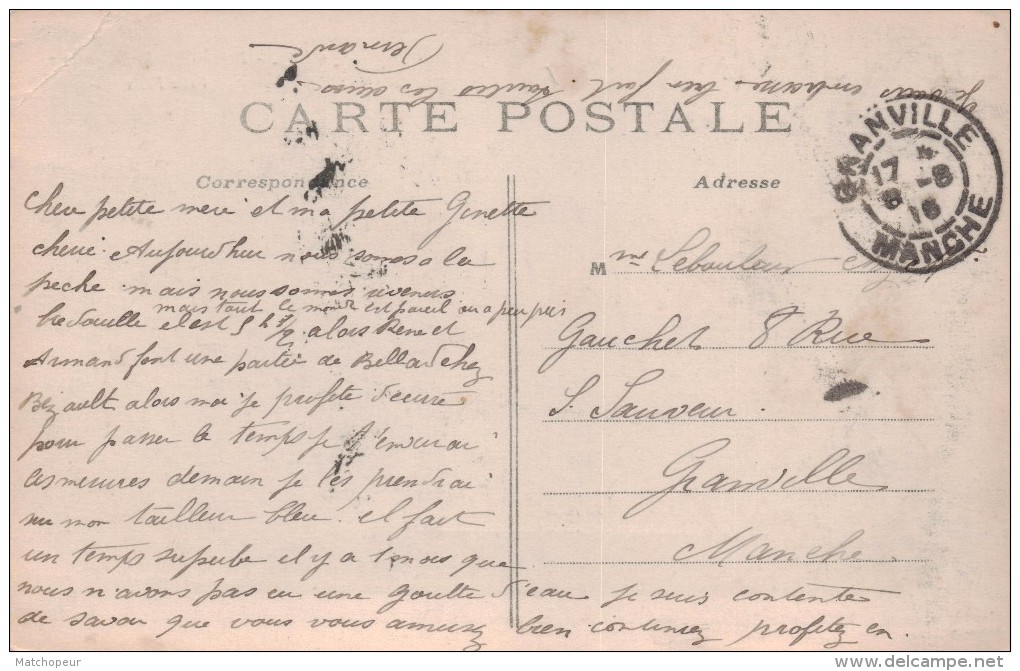 Je vous embrasse bien fort toutes les deux
Fernande
CARTE POSTALE
Correspondance
Adresse
GRANVILLE
17 - 8
8 16
MANCHE
Chere petite mere et ma petite Ginette
cherie Aujourd'hui nous somes a la
peche mais nous sommes revenus
mais tout le monde est pareil ou a peu pres
bredouille il est 5 h 1/2 alors Rene et
Armand font une partie de Bellad chez
Bezault alors moi je profite d'ecrire
pour passer le temps je t'enverai
les mesures demain je les prendrai
sur mon tailleur bleu il fait
un temps superbe il y a 1 mois que
nous n'avons pas eu une goutte d'eau je suis contente
de savoir que vous vous amusez bien continuez profitez en.
Mme Lebouteur
Gauchet 8 Rue
S. Sauveur.
Granville
Manche
Matchopeur
delcampe.net